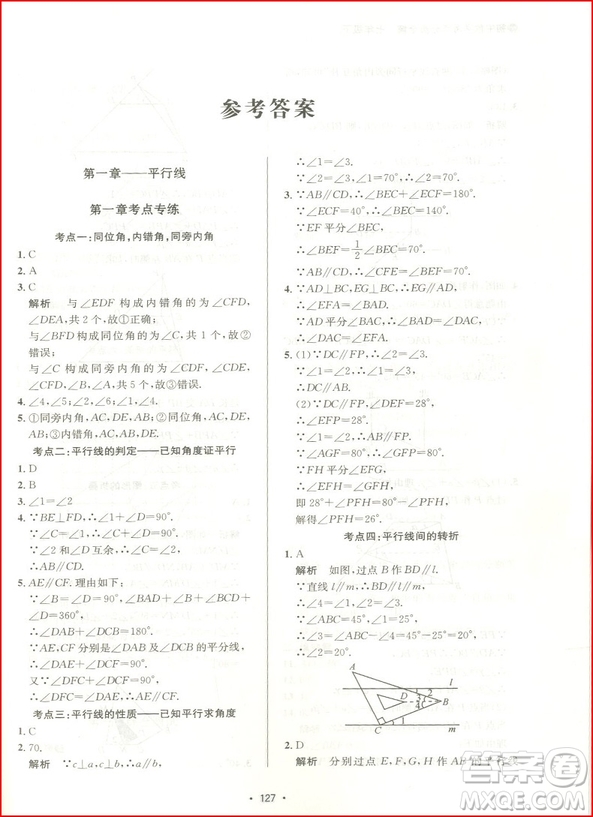 参考答案
第一章——平行线
第一章考点专练
考点一:同位角,内错角,同旁内角
1. C
2. A
3. C
解析 与∠EDF 构成内错角的为∠CFD,
∠DEA,共 2 个,故①正确;
与∠BFD 构成同位角的为∠C,共 1 个,故②
错误;
与∠C 构成同旁内角的为∠CDF, ∠CDE,
∠CFD, ∠CED, ∠B,共 5 个,故③错误.
4. ∠4, ∠5, ∠6; ∠2.
5. ①同旁内角,AC,DE,AB;②同旁内角,AC,DE,
AB;③内错角,AB,AC,DE.
考点二:平行线的判定——已知角度证平行
1. D
2. B
3. ∠1=∠2
4. ∵BE⊥FD,∴∠1+∠D=90°.
∵∠2 和∠D 互余,∴∠2+∠D=90°.
∴∠1=∠2.
∵∠C=∠1,∴∠C=∠2.
∴AB∥CD.
5. AE∥CF. 理由如下:
∵∠B=90°, ∠BAD+∠B+∠BCD+
∠D=360°,
∴∠DAB+∠DCB=180°.
∵AE,CF 分别是∠DAB 和∠DCB 的平分线,
∴∠DAE+∠DCF=90°.
又∵∠DFC+∠DCF=90°,
∴∠DFC=∠DAE. ∴AE∥CF.
考点三:平行线的性质——已知平行求角度
1. C
2. 70.
解析 ∵c⊥a,c⊥b,∴a∥b.
∴∠1=∠3.
∵∠1=70°,∴∠2=∠1=70°.
3. ∵AB∥CD,∴∠BEC+∠ECF=180°.
∵∠ECF=40°,∴∠BEC=140°.
∵EF 平分∠BEC,
∴∠BEF=1/2∠BEC=70°.
4. ∵AD⊥BC,EG⊥BC,∴AD∥EG.
∴∠EFA=∠BAD.
∵AD 平分∠BAC,∴∠BAD=∠DAC.
∴∠DAC=∠EFA.
5. (1)∵DC∥FP,∴∠2=∠3.
∵∠1=∠2,∴∠1=∠3.
∴DC∥AB.
(2)∵DC∥FP,∠DEF=28°,
∴∠EFP=28°.
∵DC∥AB,DC∥FP,∴AB∥FP.
∵∠AGF=80°,∴∠GFP=80°.
∵FH 平分∠EFG,
∴∠EFH=∠GFH=
∠EFP+∠PFH=∠GFP-∠PFH,
即 28°+∠PFH=80°-∠PFH.
解得∠PFH=26°.
考点四:平行线间的转折
1. A
解析 如图,过点 B 作 BD∥l.
∵直线 l∥m,∴BD∥l∥m.
∴∠4=∠1=25°, ∠2=∠3.
∵∠ABC=45°,
∴∠3=∠ABC-∠4=45°-25°=20°.
∴∠2=∠3=20°.
A
l
D
B
C
m
2. D
解析 分别过点 E,F,G,H 作 AB 的平行线
127
答案圈
MXQE.COM